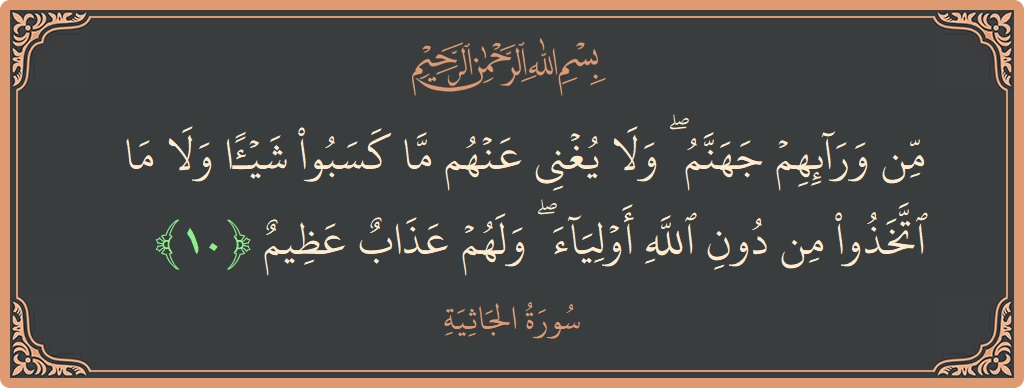 بِسْمِ اللَّهِ الرَّحْمَٰنِ الرَّحِيمِ
مِّن وَرَآئِهِمْ جَهَنَّمُ ۖ وَلَا يُغْنِى عَنْهُم مَّا كَسَبُوا۟ شَيْـًٔا وَلَا مَا
ٱتَّخَذُوا۟ مِن دُونِ ٱللَّهِ أَوْلِيَآءَ ۖ وَلَهُمْ عَذَابٌ عَظِيمٌ ﴿١٠﴾
سُورَةُ الجَاثِيَةِ